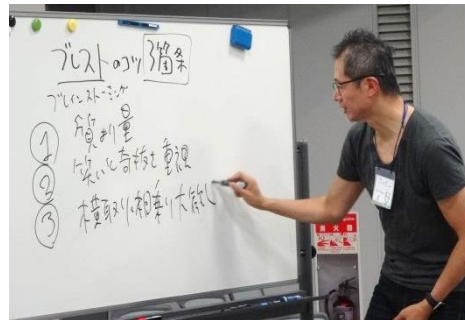 ブレストのコツ 3箇条
ブレインストーミング
① 質より量
② 笑いと奇抜を重視
③ 横取り・相乗り大歓迎
消火器